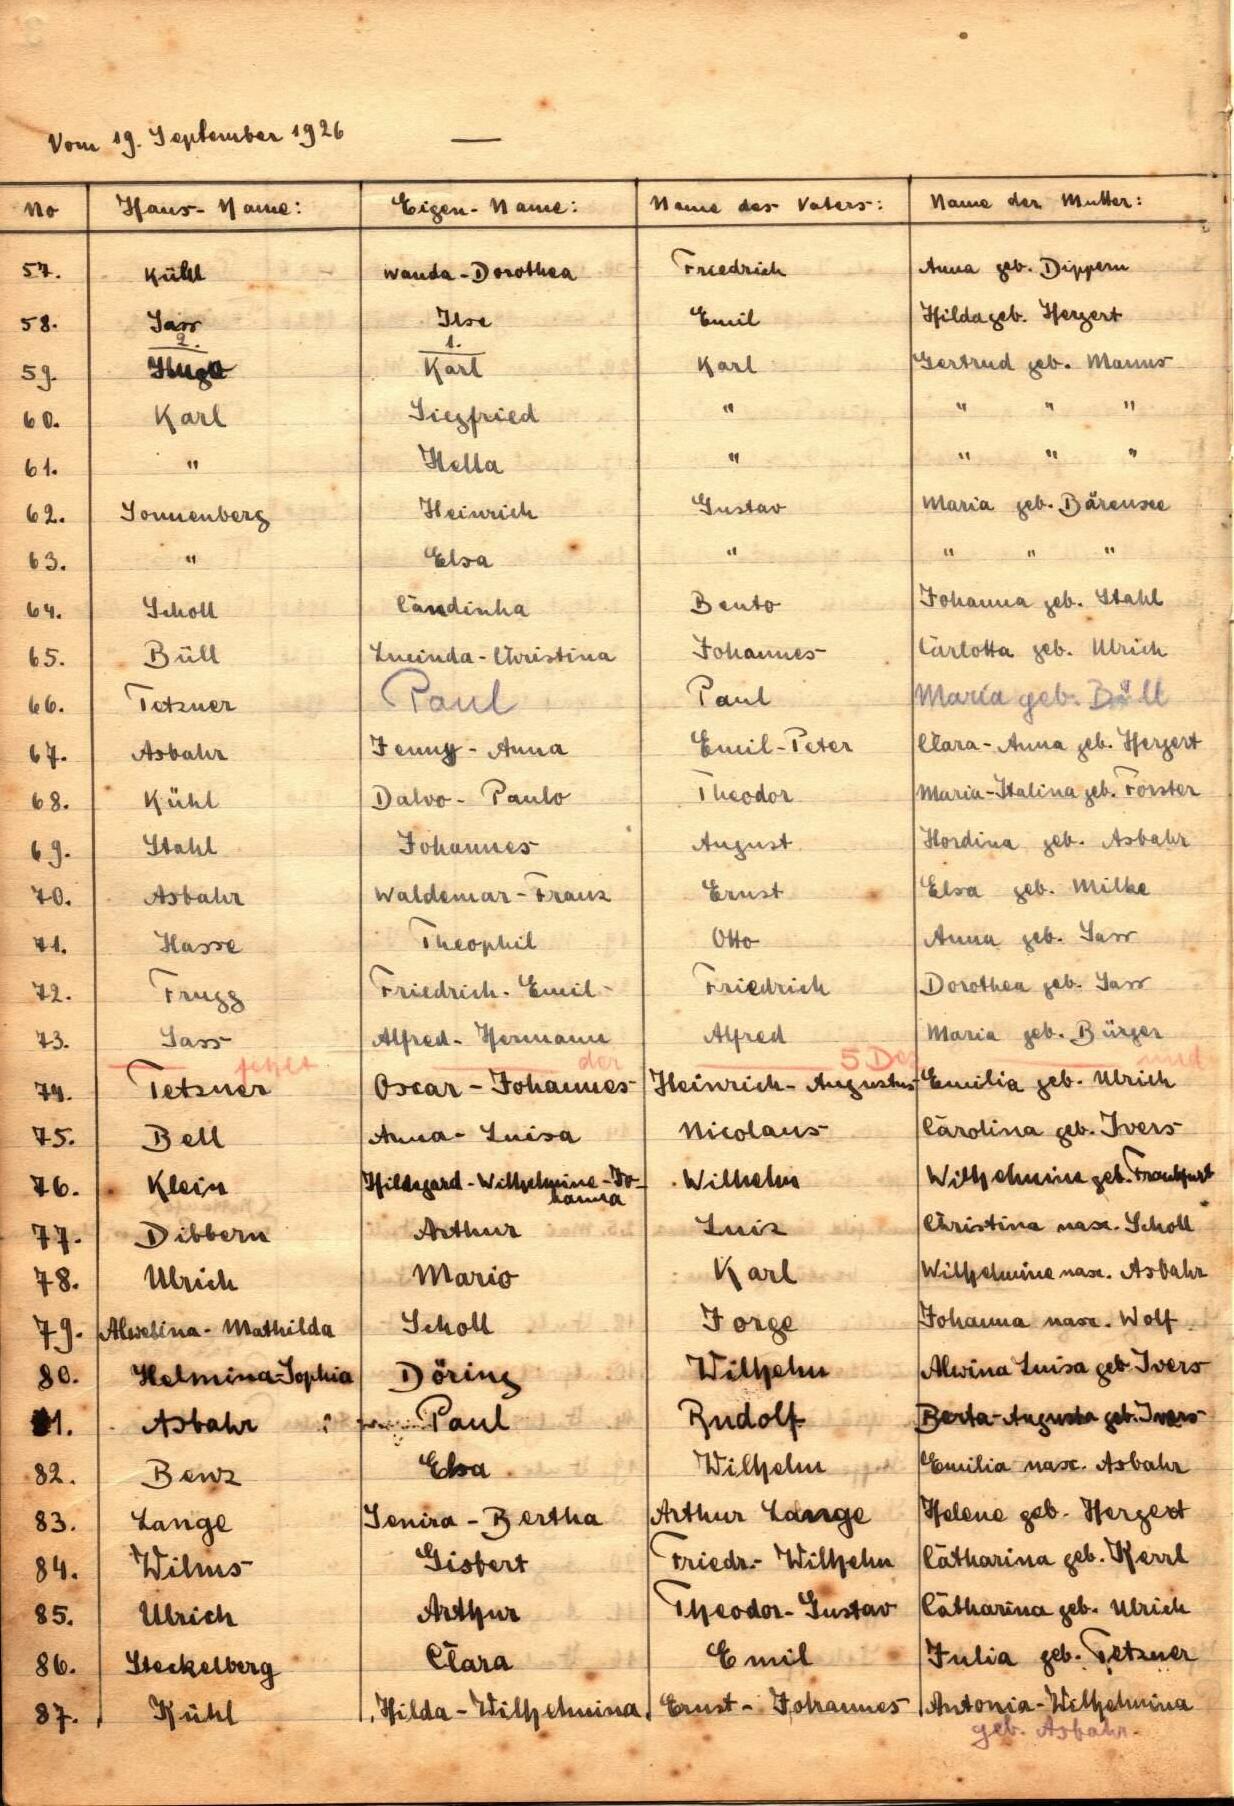 Vom 19. September 1926 —
No Haus-Name: Eigen-Name: Name des Vaters: Name der Mutter:
57. Kühl Wanda-Dorothea Friedrich Anna geb. Dippern
58. Sass Ilse Emil Hilda geb. Herzert
2. 1.
59. Hugo Karl Karl Gertrud geb. Manns
60. Karl Siegfried " " " "
61. " Hella " " " "
62. Sonnenberg Heinrich Gustav Maria geb. Bärensee
63. " Elsa " " " "
64. Scholl Cândinha Bento Johanna geb. Stahl
65. Büll Lucinda-Christina Johannes Carlotta geb. Ulrich
66. Tetzner Paul Paul Maria geb. Büll
67. Asbahr Jenny-Anna Emil-Peter Clara-Anna geb. Herzert
68. Kühl Dalvo-Paulo Theodor Maria-Italina geb. Förster
69. Stahl Johannes August Hordina geb. Asbahr
70. Asbahr Waldemar-Franz Ernst Elsa geb. Milke
71. Hasse Theophil Otto Anna geb. Sass
72. Frugg Friedrich-Emil Friedrich Dorothea geb. Sass
73. Sass Alfred-Hermann Alfred Maria geb. Bürger
fehlt der 5 De und
74. Tetzner Oscar-Johannes Heinrich-Augustus Emilia geb. Ulrich
75. Bell Anna-Luisa Nicolaus Carolina geb. Ivers
76. Klein Hildegard-Wilhelmine-Jo- Wilhelm Wilhelmine geb. Frankfurt
hanna
77. Dibbern Arthur Luiz Christina nasc. Scholl
78. Ulrich Mario Karl Wilhelmine nasc. Asbahr
79. Alwesina-Mathilda Scholl Jorge Johanna nasc. Wolf
80. Helmina-Sophia Döring Wilhelm Alwina Luisa geb. Ivers
81. Asbahr Paul Rudolf Berta-Augusta geb. Ivers
82. Benz Elsa Wilhelm Emilia nasc. Asbahr
83. Lange Senira-Bertha Arthur Lange Helene geb. Herzert
84. Wilms Gisbert Friedr.-Wilhelm Catharina geb. Kerrl
85. Ulrich Arthur Theodor-Gustav Catharina geb. Ulrich
86. Steckelberg Clara Emil Julia geb. Tetzner
87. Kühl Hilda-Wilhelmina Ernst-Johannes Antonia-Wilhelmina
geb. Asbahr